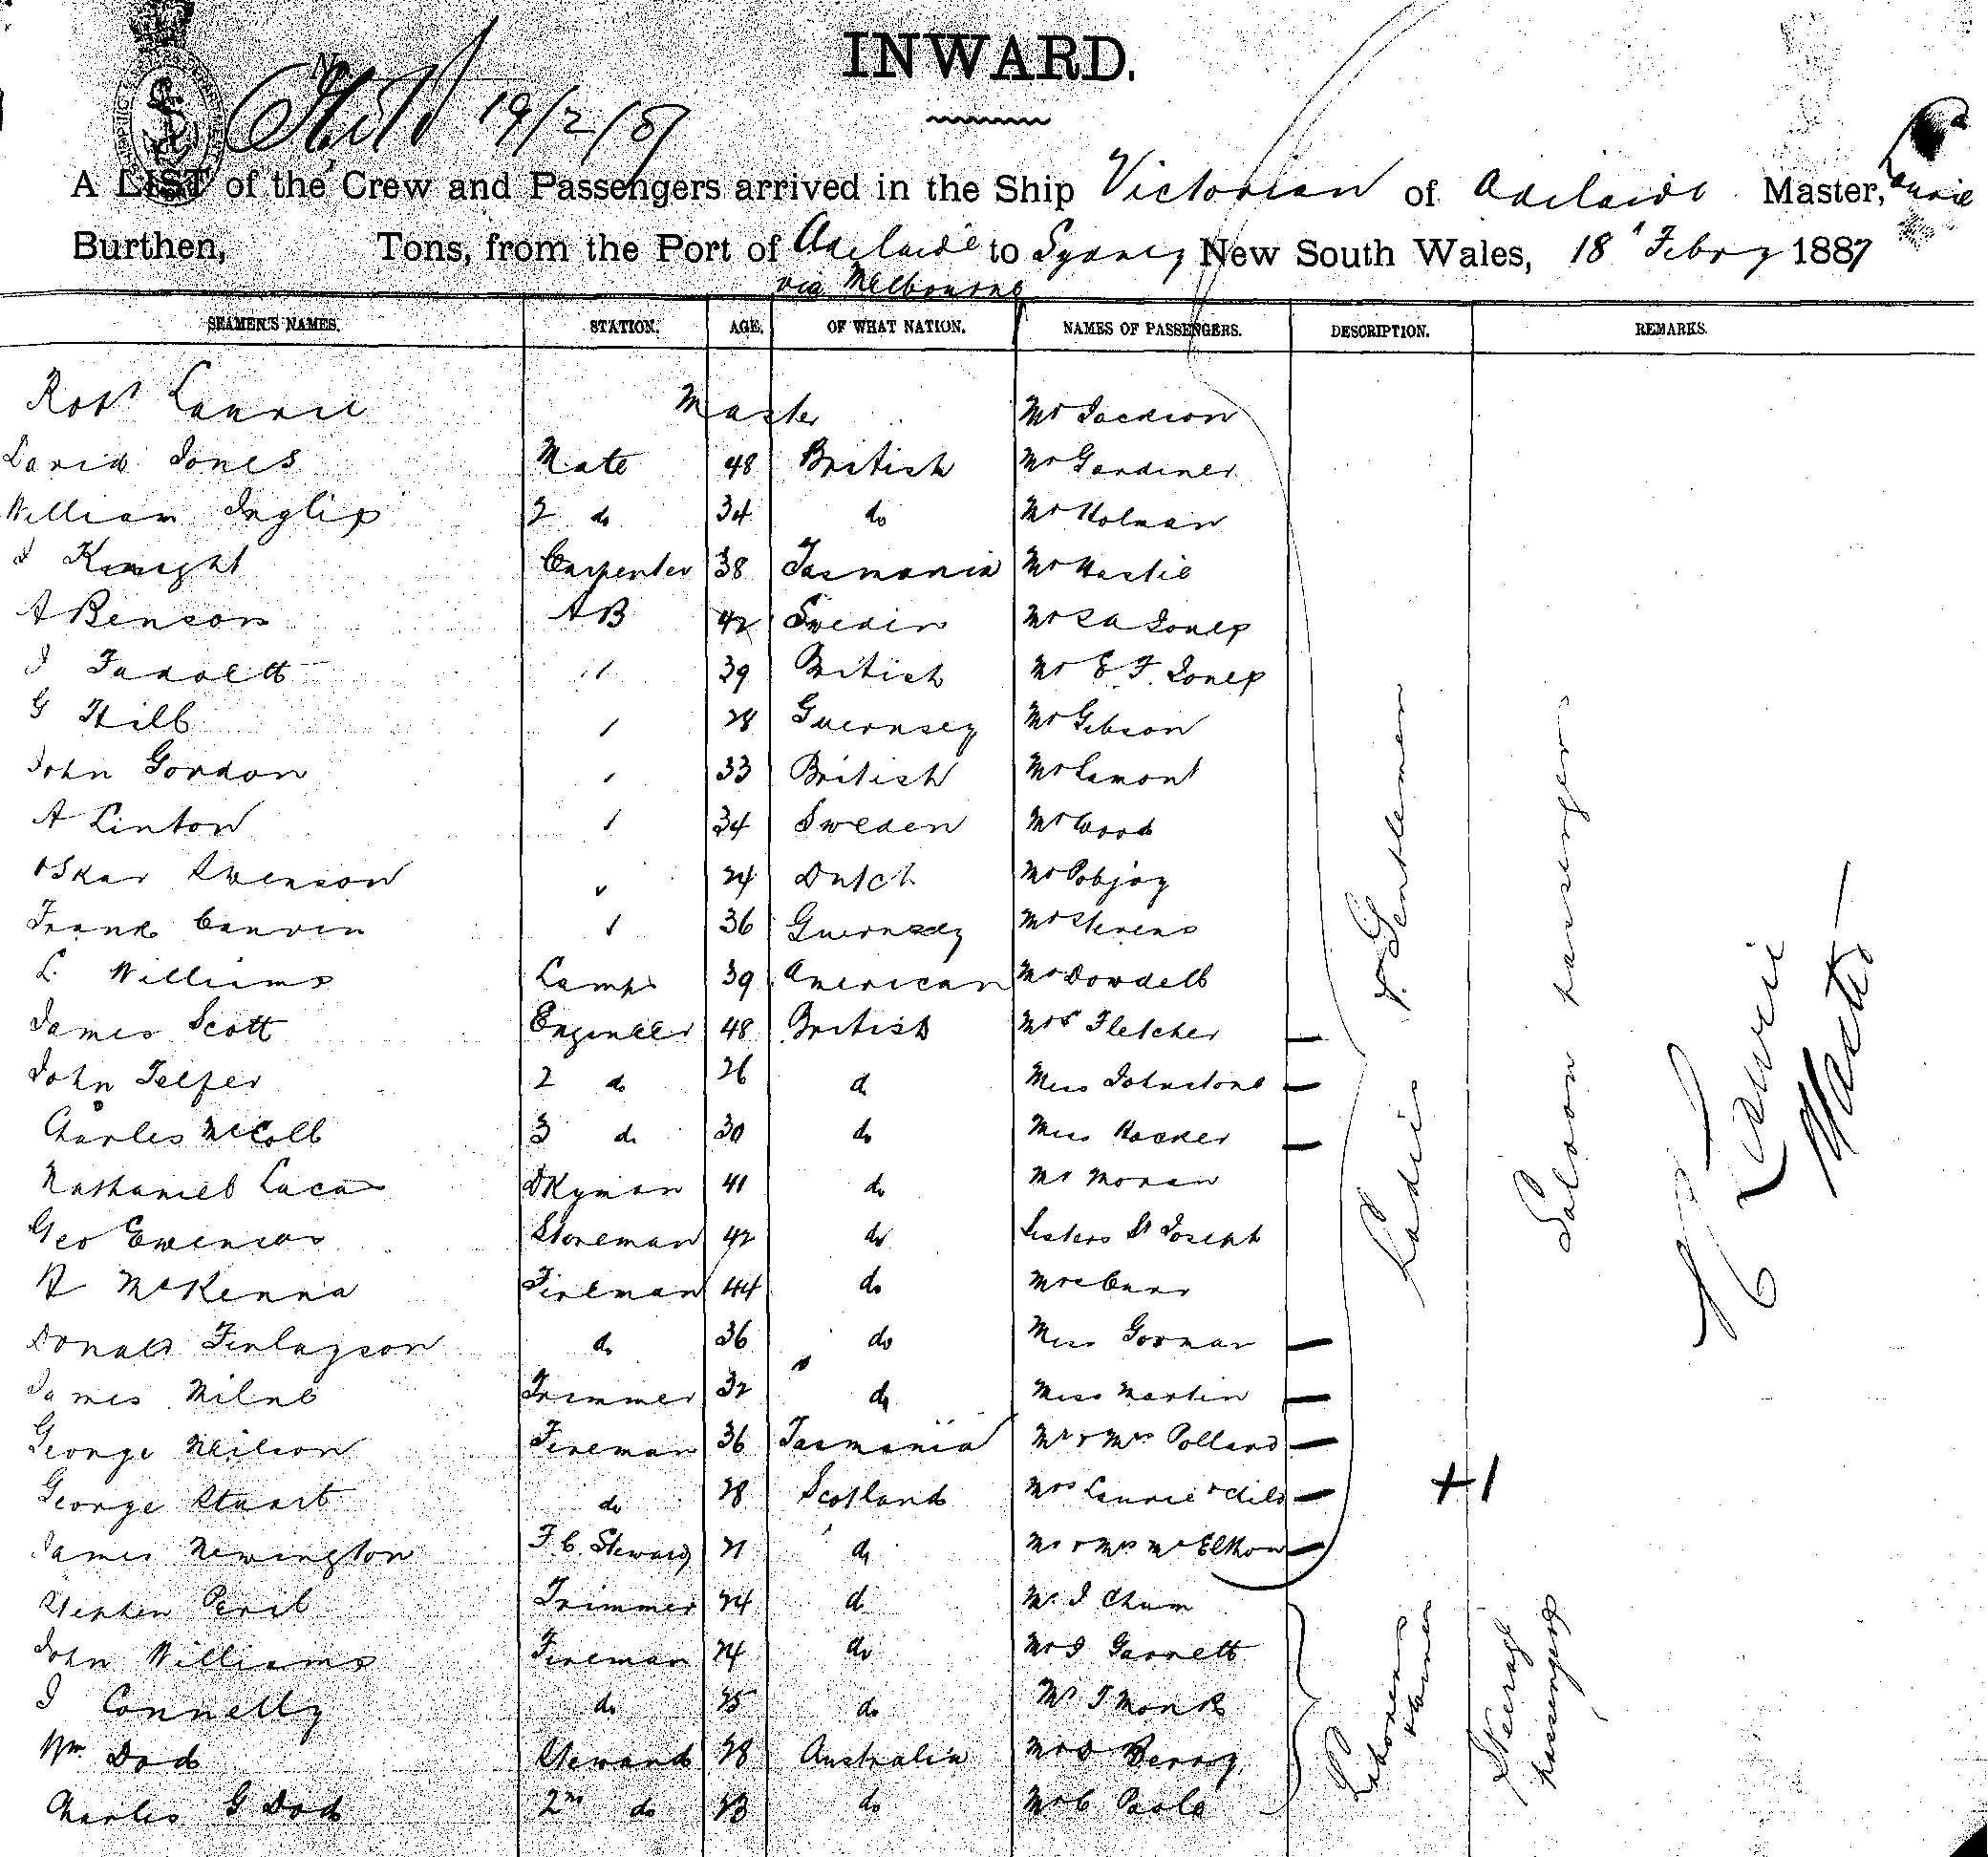 INWARD.
19/2/87
A LIST of the Crew and Passengers arrived in the Ship Victorian of Adelaide Master, Laurie
Burthen, Tons, from the Port of Adelaide to Sydney New South Wales, 18 Febry 1887
via Melbourne
SEAMEN'S NAMES. STATION. AGE. OF WHAT NATION. NAMES OF PASSENGERS. DESCRIPTION. REMARKS.
Robt Laurie Master Mr Jackson
David Jones Mate 48 British Mr Gardiner
William Inglis 2 do 34 do Mr Holman
J Knight Carpenter 38 Tasmania Mr Hastie
A Benson AB 42 Sweden Mr S A Jones
J 39 British Mr E F Jones
G Hill 28 Guernsey Mr Gibson
John Gordon 33 British Mr Lamont
A Linton 34 Sweden Mr Wood
Oskar Swenson 24 Dutch Mr Pobjoy
Frank 36 Guernsey Mr Stevens
L. Williams Lamps 39 American Mr Dowdell
James Scott Engineer 48 British Mrs Fletcher
John Telfer 2 do 26 do Miss Johnstone
Charles McColl 3 do 30 do Miss Hooker
Nathaniel Lucas Dkyman 41 do Mr Moran
Geo Storeman 42 do Sisters St Joseph
R McKenna Fireman 44 do
Donald Finlayson do 36 do Miss Gorman
James Milne Trimmer 32 do Miss Martin
George Neilson Fireman 36 Tasmania Mr & Mrs Pollard
George Stuart do 28 Scotland Mrs Laurie & Child
+1
James Newington F.C. Steward 21 do Mr & Mrs McElhon
Stephen Peril Trimmer 24 do Mr J Chum
John Williams Fireman 24 do Mr J Garnett
J Connelly do 25 do Mr T Monk
Wm Dod Steward 28 Australia Mr D Berry
Charles G Dod 2nd do 23 do Mr C Poole
Ladies & Gentlemen
Saloon passengers
Laurie
Master
Labourers
Steerage
passengers